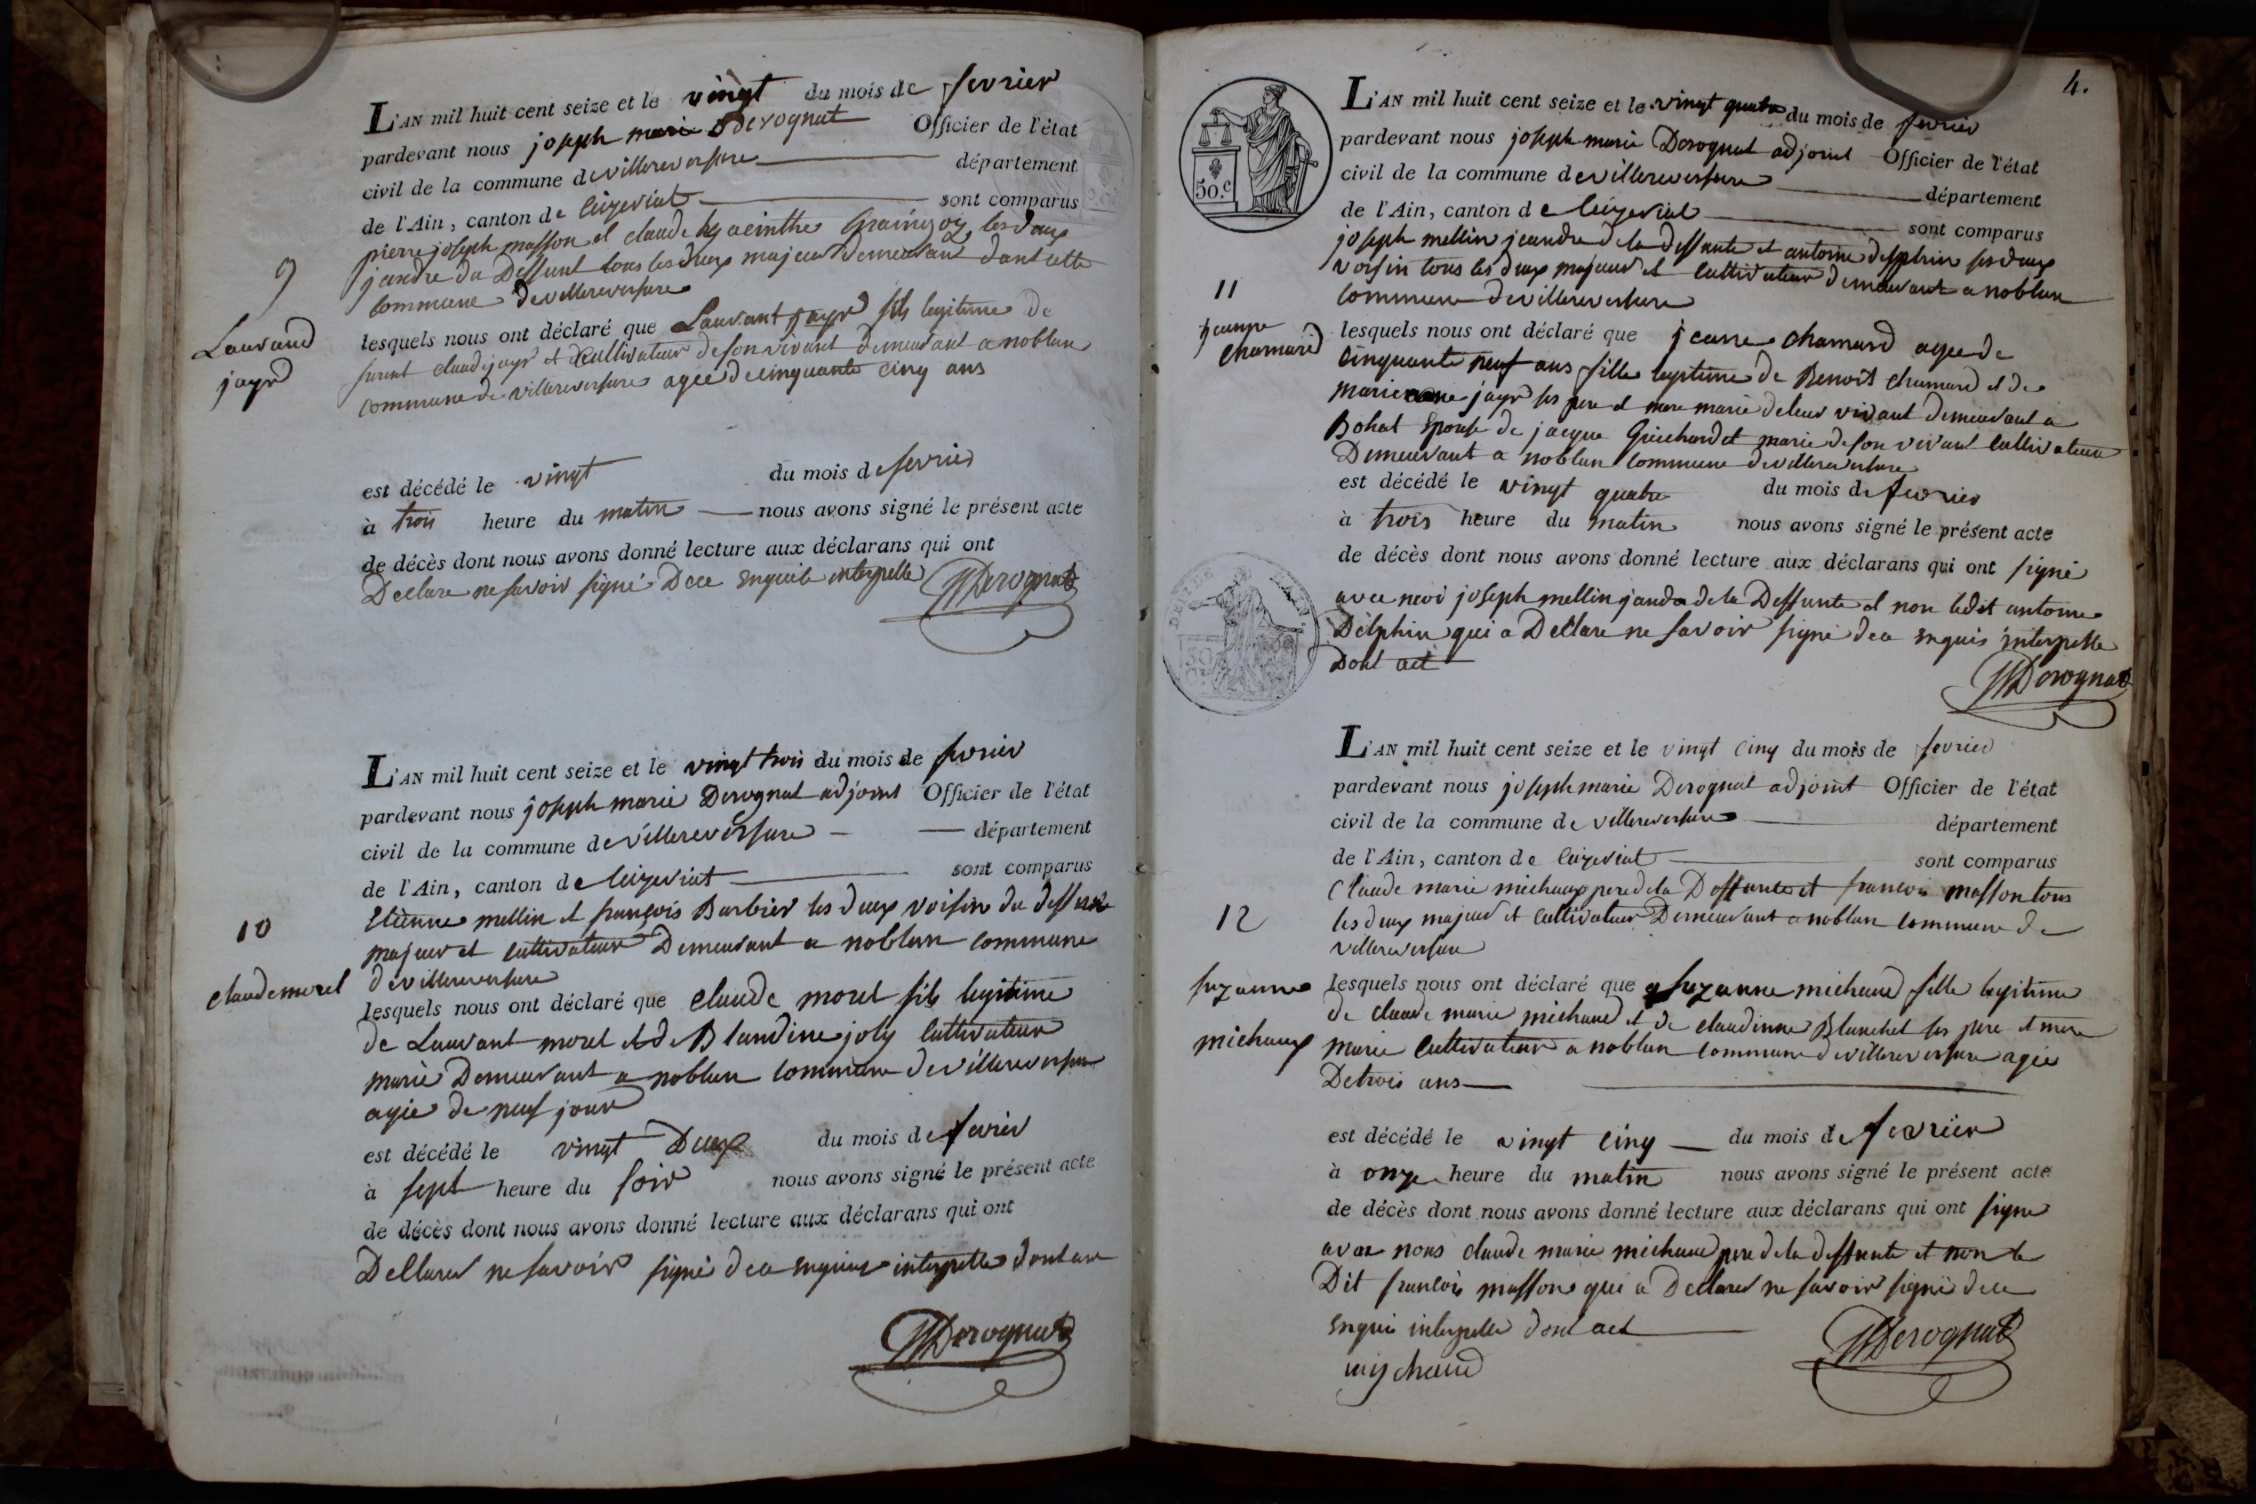 L'AN mil huit cent seize et le vingt du mois de fevrier
pardevant nous joseph marie Derognat Officier de l'état
civil de la commune de villereversure département
de l'Ain, canton de Ceizeriat sont comparus
pierre joseph masson et claude hyacinthe les deux
jendre du Deffunt tous les deux majeur demeurant dans cette
commune de villereversure
9
Lauvand
jayr
lesquels nous ont déclaré que Lauvant jayr fils legitime de
furent claude jayr et Cultivateur de son vivant demeurant a noblan
commune de villereversure agee de cinquante cinq ans
est décédé le vingt du mois de fevrier
à trois heure du matin nous avons signé le présent acte
de décès dont nous avons donné lecture aux déclarans qui ont
Declare ne savoir signé Dece enquit interpelle JMDerognat
L'AN mil huit cent seize et le vingt trois du mois de fevrier
pardevant nous joseph marie Derognat adjoint Officier de l'état
civil de la commune de villereversure département
de l'Ain, canton de Ceizeriat sont comparus
Etienne mellin et françois Barbier les deux voisin du deffunt
majeur et cultivateur Demeurant a noblan commune
de villereversure
10
claude morel
lesquels nous ont déclaré que claude morel fils legitime
de Lauvant morel et de Blandine joly Cultivateur
marié Demeurant a noblan commune de villereversure
agée de neuf jour
est décédé le vingt Deux du mois de fevrier
à sept heure du soir nous avons signé le présent acte
de décès dont nous avons donné lecture aux déclarans qui ont
Declarer ne savoir signé dece enquis interpelle dont
JMDerognat
4.
50.c
L'AN mil huit cent seize et le vingt quatre du mois de fevrier
pardevant nous joseph marie Derognat adjoint Officier de l'état
civil de la commune de villereversure département
de l'Ain, canton de Ceizeriat sont comparus
joseph mellin jeandre de la deffunte et antoine delphin ses deux
voisin tous les deux majeur et cultivateur demeurant a noblan
commune de villereversure
11
jeanne
chamard
lesquels nous ont déclaré que jeanne chamard agee de
cinquante neuf ans fille legitime de Benoit chamard et de
marie jayr ses pere et mere marie de leur vivant demeurant a
Bohat Epouse de jacque Guichardet marie de son vivant cultivateur
Demeurant a noblan commune de villereversure
est décédé le vingt quatre du mois de fevrier
à trois heure du matin nous avons signé le présent acte
de décès dont nous avons donné lecture aux déclarans qui ont signé
avec joseph mellin jandre de la Deffunte et non ledit antoine
Delphin qui a Déclare ne savoir signé dece enquis interpelle
Dont act
JMDerognat
L'AN mil huit cent seize et le vingt cinq du mois de fevrier
pardevant nous joseph marie Derognat adjoint Officier de l'état
civil de la commune de villereversure département
de l'Ain, canton de Ceizeriat sont comparus
Claude marie michaux pere de la Deffunte et francois masson tous
les deux majeur et cultivateur Demeurant a noblan commune de
villereversure
12
suzanne
michaux
lesquels nous ont déclaré que suzanne michaud fille legitime
de claude marie michaud et de claudinne Blanchet ses pere et mere
marie Cultivateur a noblan commune de villereversure agée
De trois ans
est décédé le vingt cinq du mois de fevrier
à onze heure du matin nous avons signé le présent acte
de décès dont nous avons donné lecture aux déclarans qui ont signe
avec nous claude marie michaud pere de la deffunte et non le
Dit francois masson qui a Declarer ne savoir signé dece
enquis interpelle dont act JMDerognat
michaud